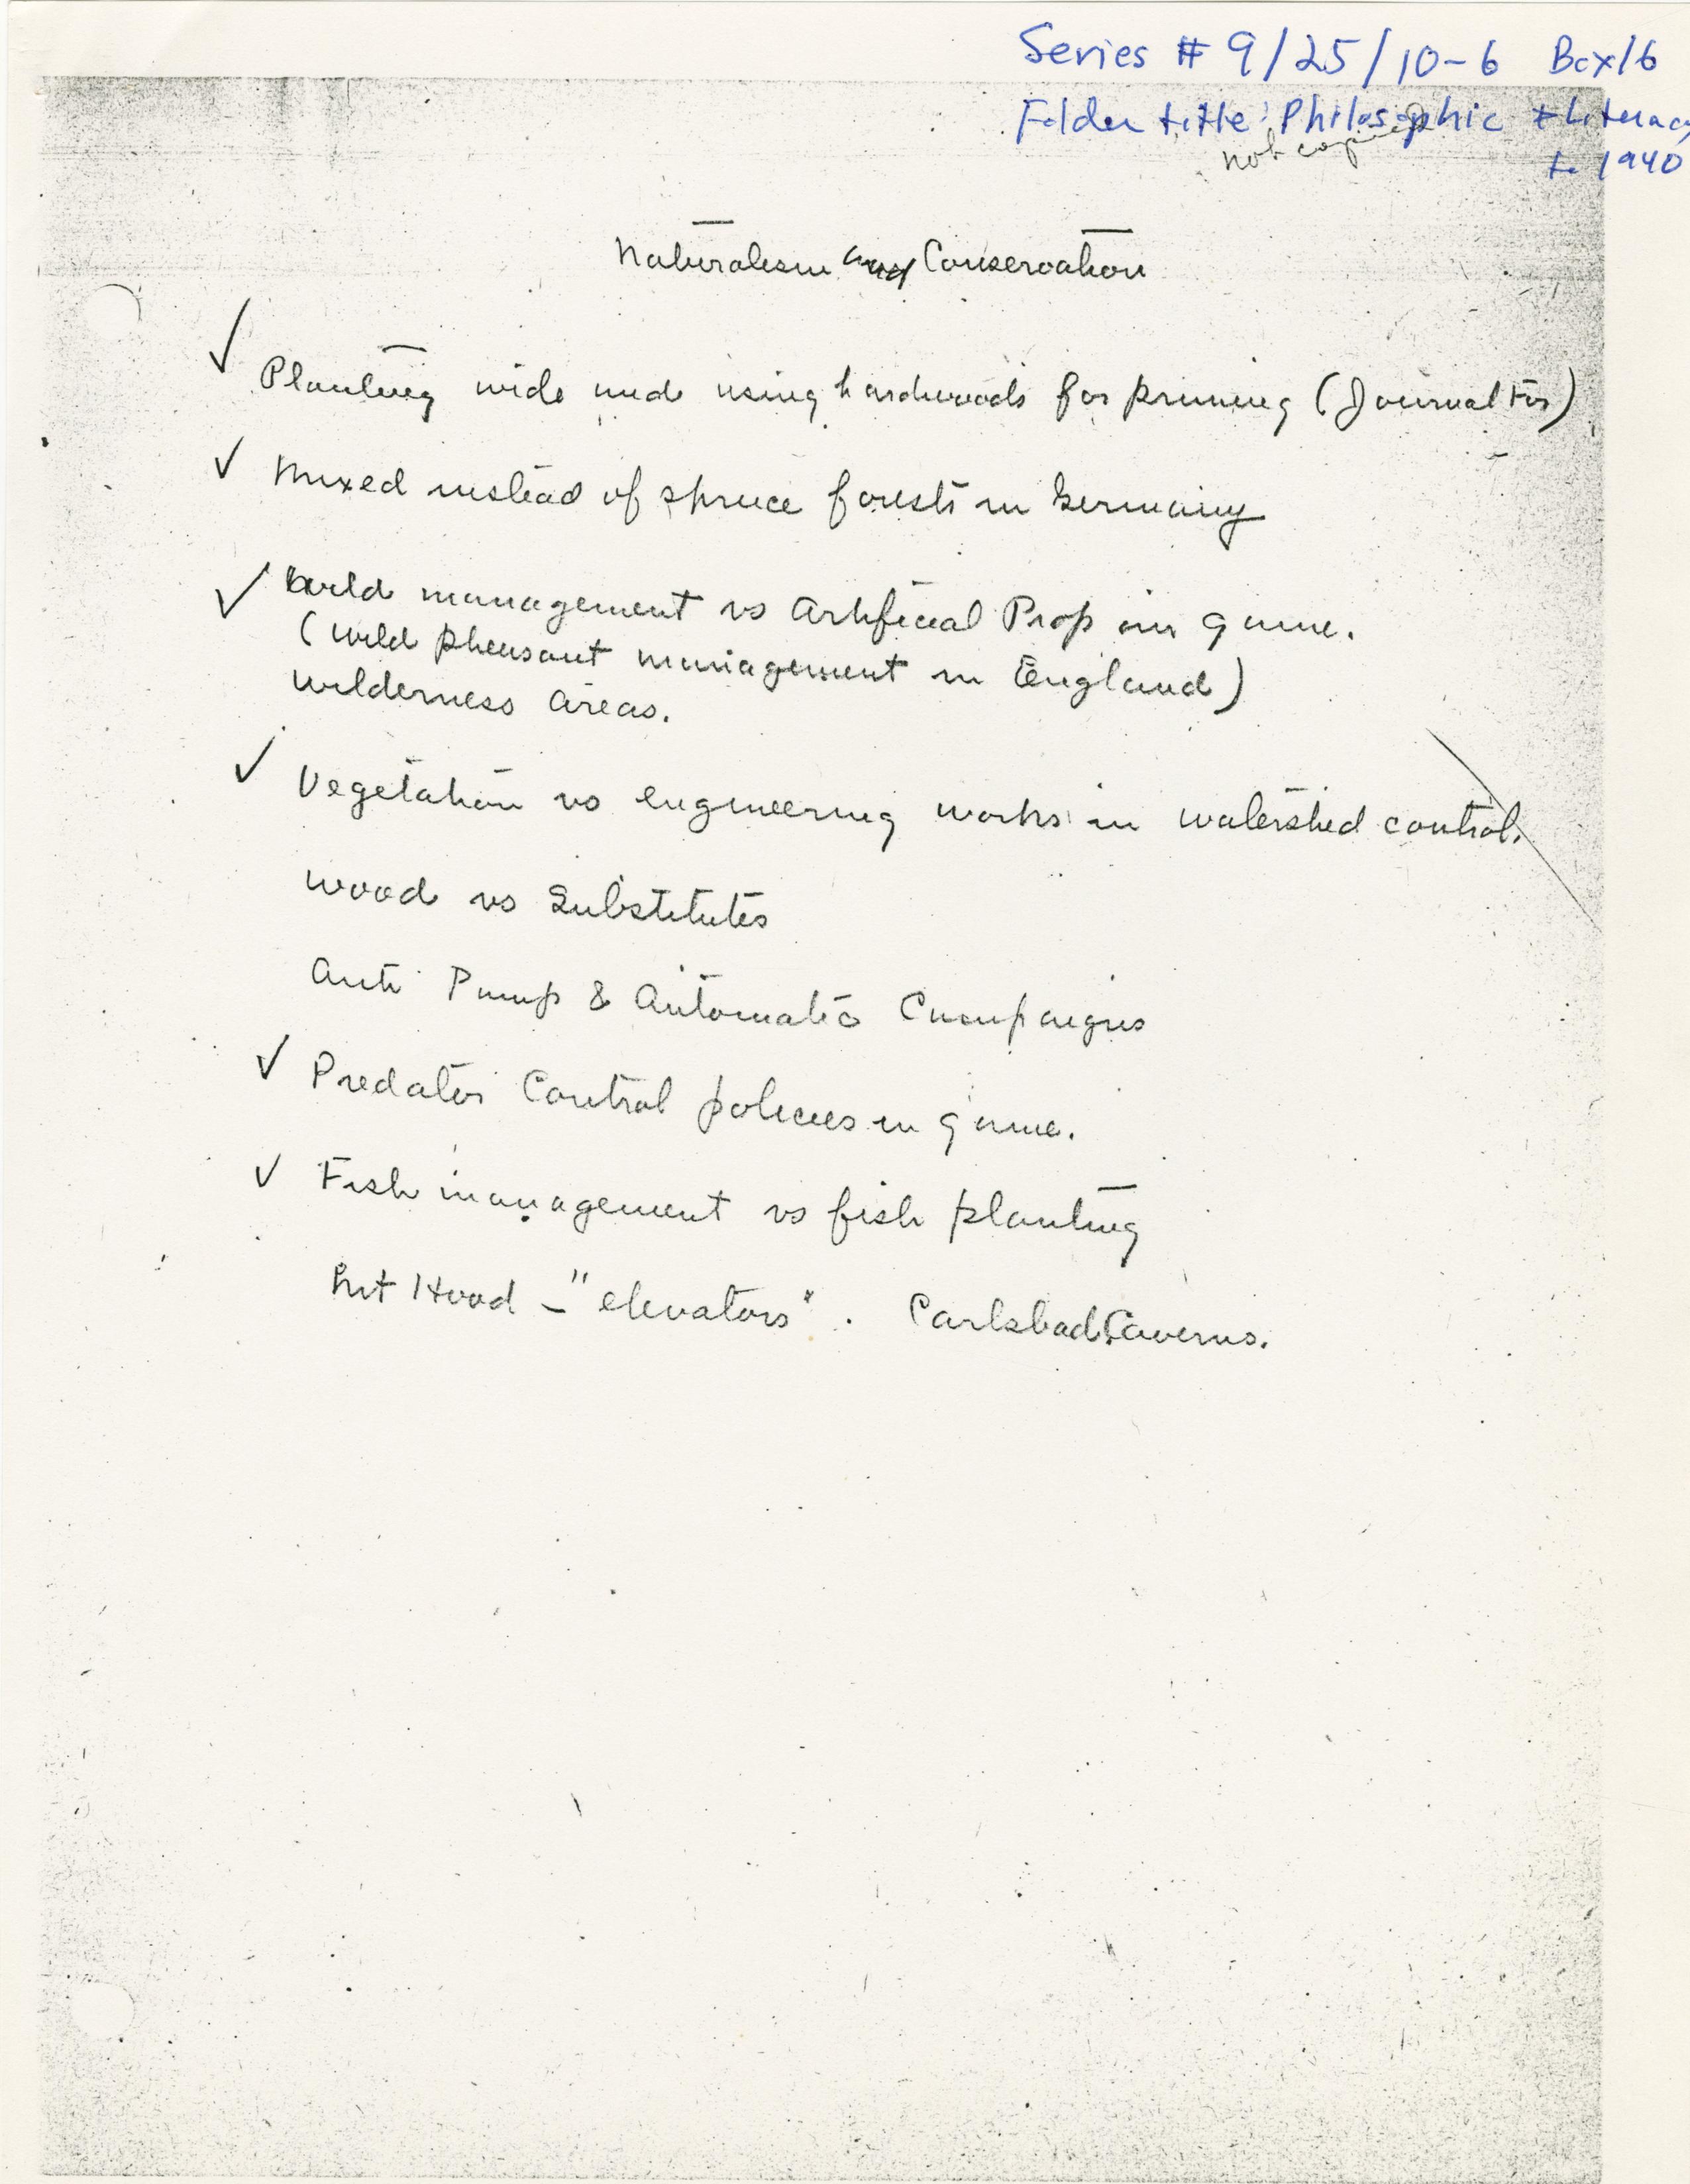 Series # 9/25/10-6 Box 16
Folder title: Philosophic & Literary
to 1940
not copied
Naturalism and Conservation
✓ Planting wide and using hardwoods for pruning (Journal For)
✓ Mixed instead of spruce forests in Germany
✓ Wild management vs Artificial Prop in game.
(wild pheasant management in England)
wilderness areas.
✓ Vegetation vs engineering works in watershed control.
Wood vs Substitutes
Anti Pump & Automatic Campaigns
✓ Predator Control policies in game.
✓ Fish management vs fish planting
Mt Hood – "elevators". Carlsbad Caverns.